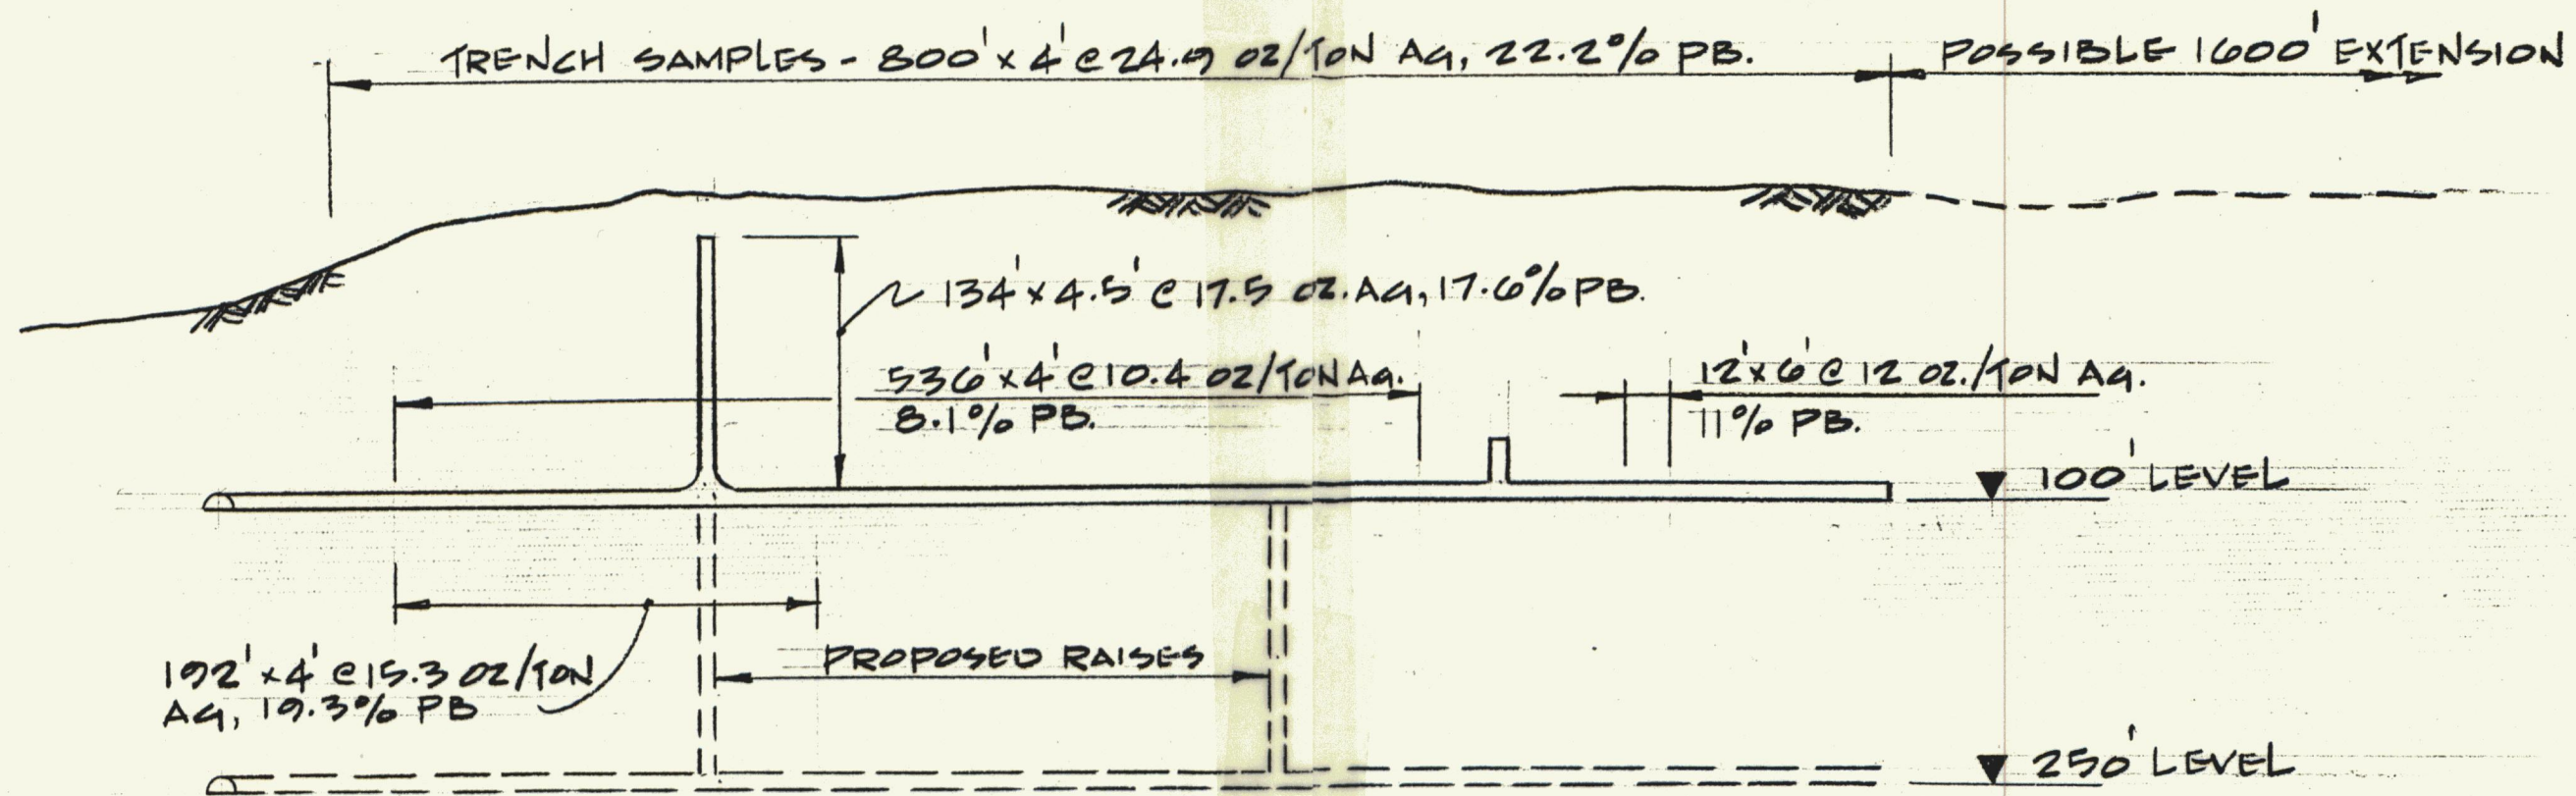 TRENCH SAMPLES - 800' x 4' @ 24.9 OZ/TON AG, 22.2% PB.
POSSIBLE 1600' EXTENSION
134' x 4.5' @ 17.5 OZ. AG, 17.6% PB.
536' x 4' @ 10.4 OZ/TON AG.
8.1% PB.
12' x 6' @ 12 OZ./TON AG.
11% PB.
100' LEVEL
192' x 4' @ 15.3 OZ/TON
AG, 19.3% PB
PROPOSED RAISES
250' LEVEL